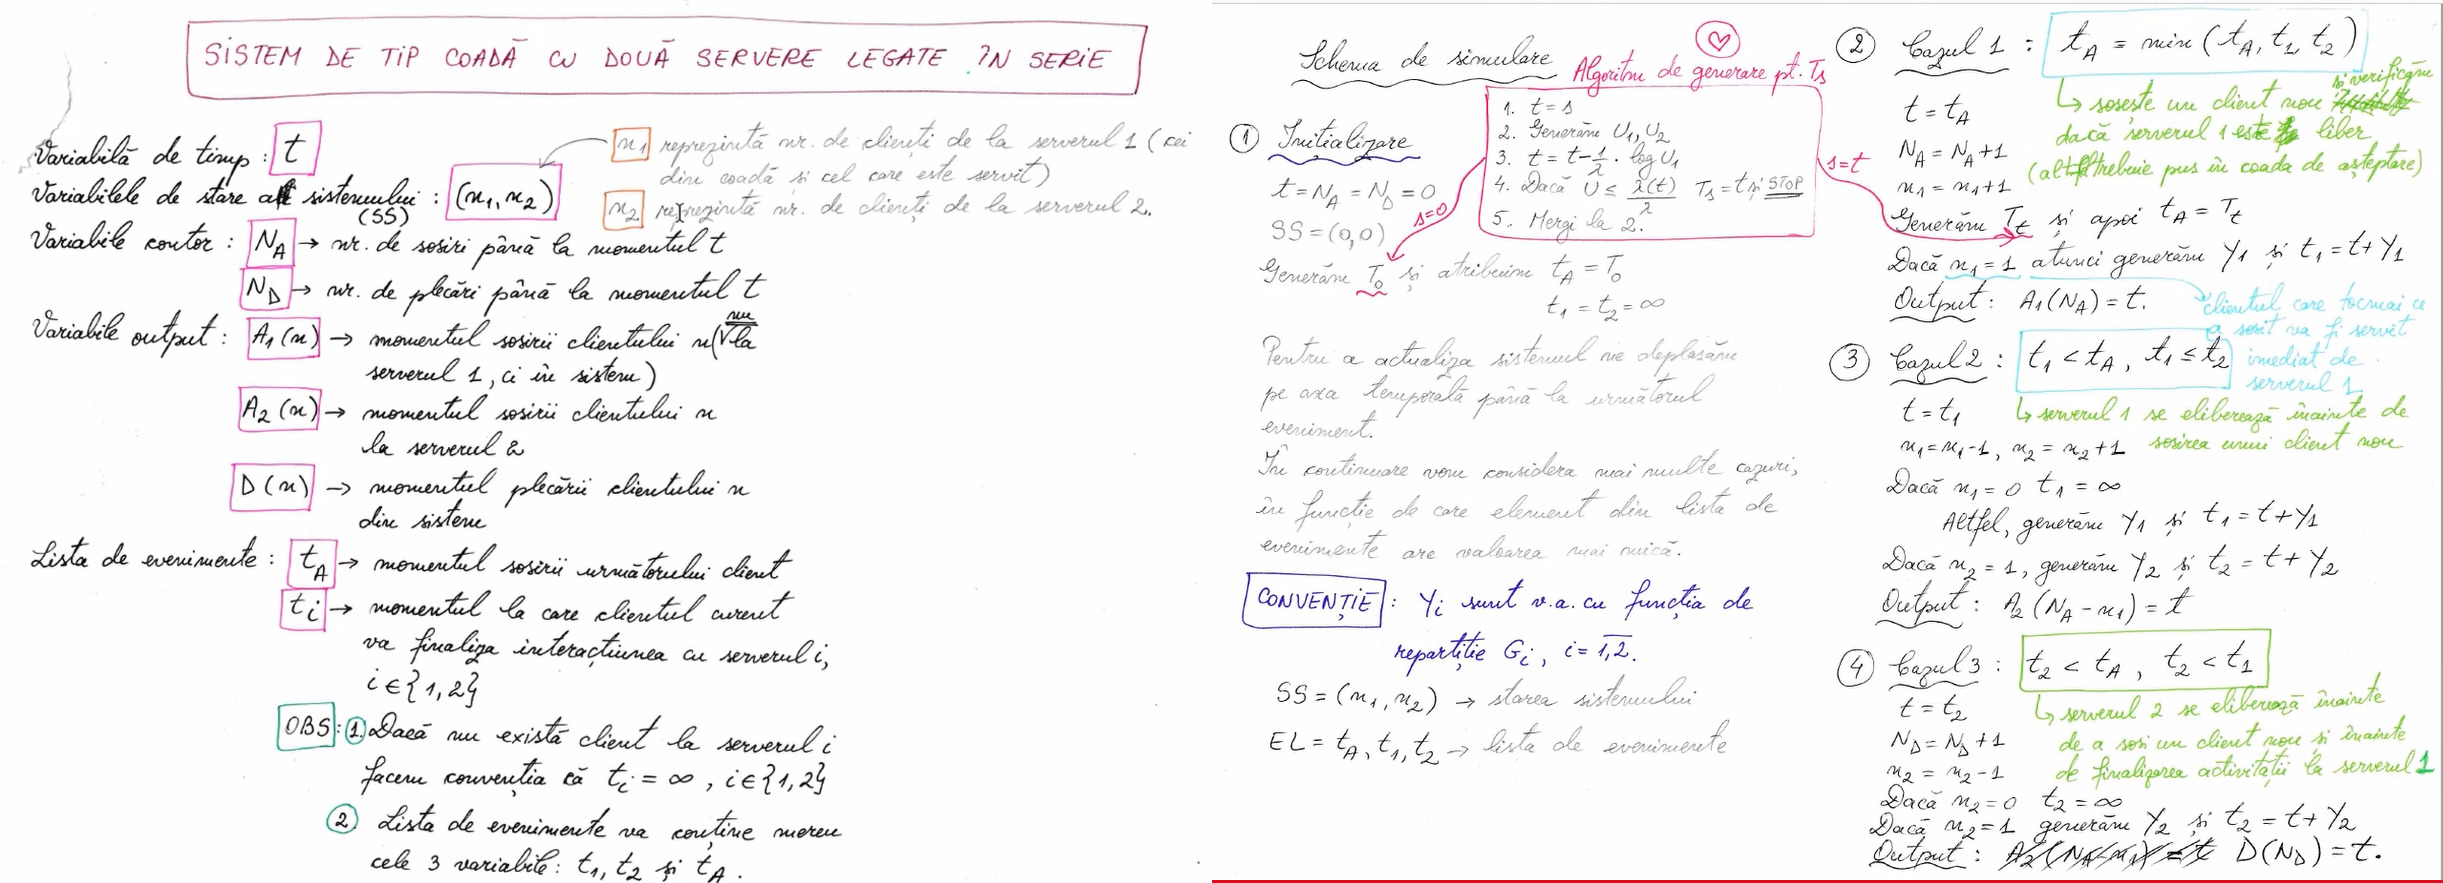 SISTEM DE TIP COADĂ CU DOUĂ SERVERE LEGATE ÎN SERIE
Variabilă de timp: t
n1 reprezintă nr. de clienți de la serverul 1 (cei
din coadă și cel care este servit)
Variabilele de stare a sistemului : (n1, n2)
(SS)
n2 reprezintă nr. de clienți de la serverul 2.
Variabile contor : NA → nr. de sosiri până la momentul t
ND → nr. de plecări până la momentul t
Variabile output : A1(n) → momentul sosirii clientului n (nu la
serverul 1, ci în sistem)
A2(n) → momentul sosirii clientului n
la serverul 2
D(n) → momentul plecării clientului n
din sistem
Lista de evenimente : tA → momentul sosirii următorului client
ti → momentul la care clientul curent
va finaliza interacțiunea cu serverul i,
i∈{1,2}
OBS: 1. Dacă nu există client la serverul i
facem convenția că ti = ∞ , i∈{1,2}
2 Lista de evenimente va conține mereu
cele 3 variabile: t1, t2 și tA.
Schema de simulare
Algoritm de generare pt. Ts
1. t = s
2. Generăm U1, U2
3. t = t - 1/λ · log U1
4. Dacă U ≤ λ(t)/λ Ts = t și STOP
5. Mergi la 2.
s=0
s=t
1 Inițializare
t = NA = ND = 0
SS = (0,0)
Generăm T0 și atribuim tA = T0
t1 = t2 = ∞
Pentru a actualiza sistemul ne deplasăm
pe axa temporală până la următorul
eveniment.
În continuare vom considera mai multe cazuri,
în funcție de care element din lista de
evenimente are valoarea mai mică.
CONVENȚIE : Yi sunt v.a. cu funcția de
repartiție Gi, i = 1,2.
SS = (n1, n2) → starea sistemului
EL = tA, t1, t2 → lista de evenimente
2 Cazul 1 : tA = min (tA, t1, t2)
↳ sosește un client nou și verificăm
dacă serverul 1 este liber
(altfel trebuie pus în coada de așteptare)
t = tA
NA = NA + 1
n1 = n1 + 1
Generăm Tt și apoi tA = Tt
Dacă n1 = 1 atunci generăm Y1 și t1 = t + Y1
Output : A1(NA) = t.
clientul care tocmai ce
a sosit va fi servit
imediat de
serverul 1
3 Cazul 2 : t1 < tA , t1 ≤ t2
↳ serverul 1 se eliberează înainte de
sosirea unui client nou
t = t1
n1 = n1-1, n2 = n2+1
Dacă n1 = 0 t1 = ∞
Altfel, generăm Y1 și t1 = t + Y1
Dacă n2 = 1, generăm Y2 și t2 = t + Y2
Output : A2 (NA - n1) = t
4 Cazul 3 : t2 < tA , t2 < t1
↳ serverul 2 se eliberează înainte
de a sosi un client nou și înainte
de finalizarea activității la serverul 1
t = t2
ND = ND + 1
n2 = n2 - 1
Dacă n2 = 0 t2 = ∞
Dacă n2 = 1 generăm Y2 și t2 = t + Y2
Output : A2 (NA - n1) = t D(ND) = t.